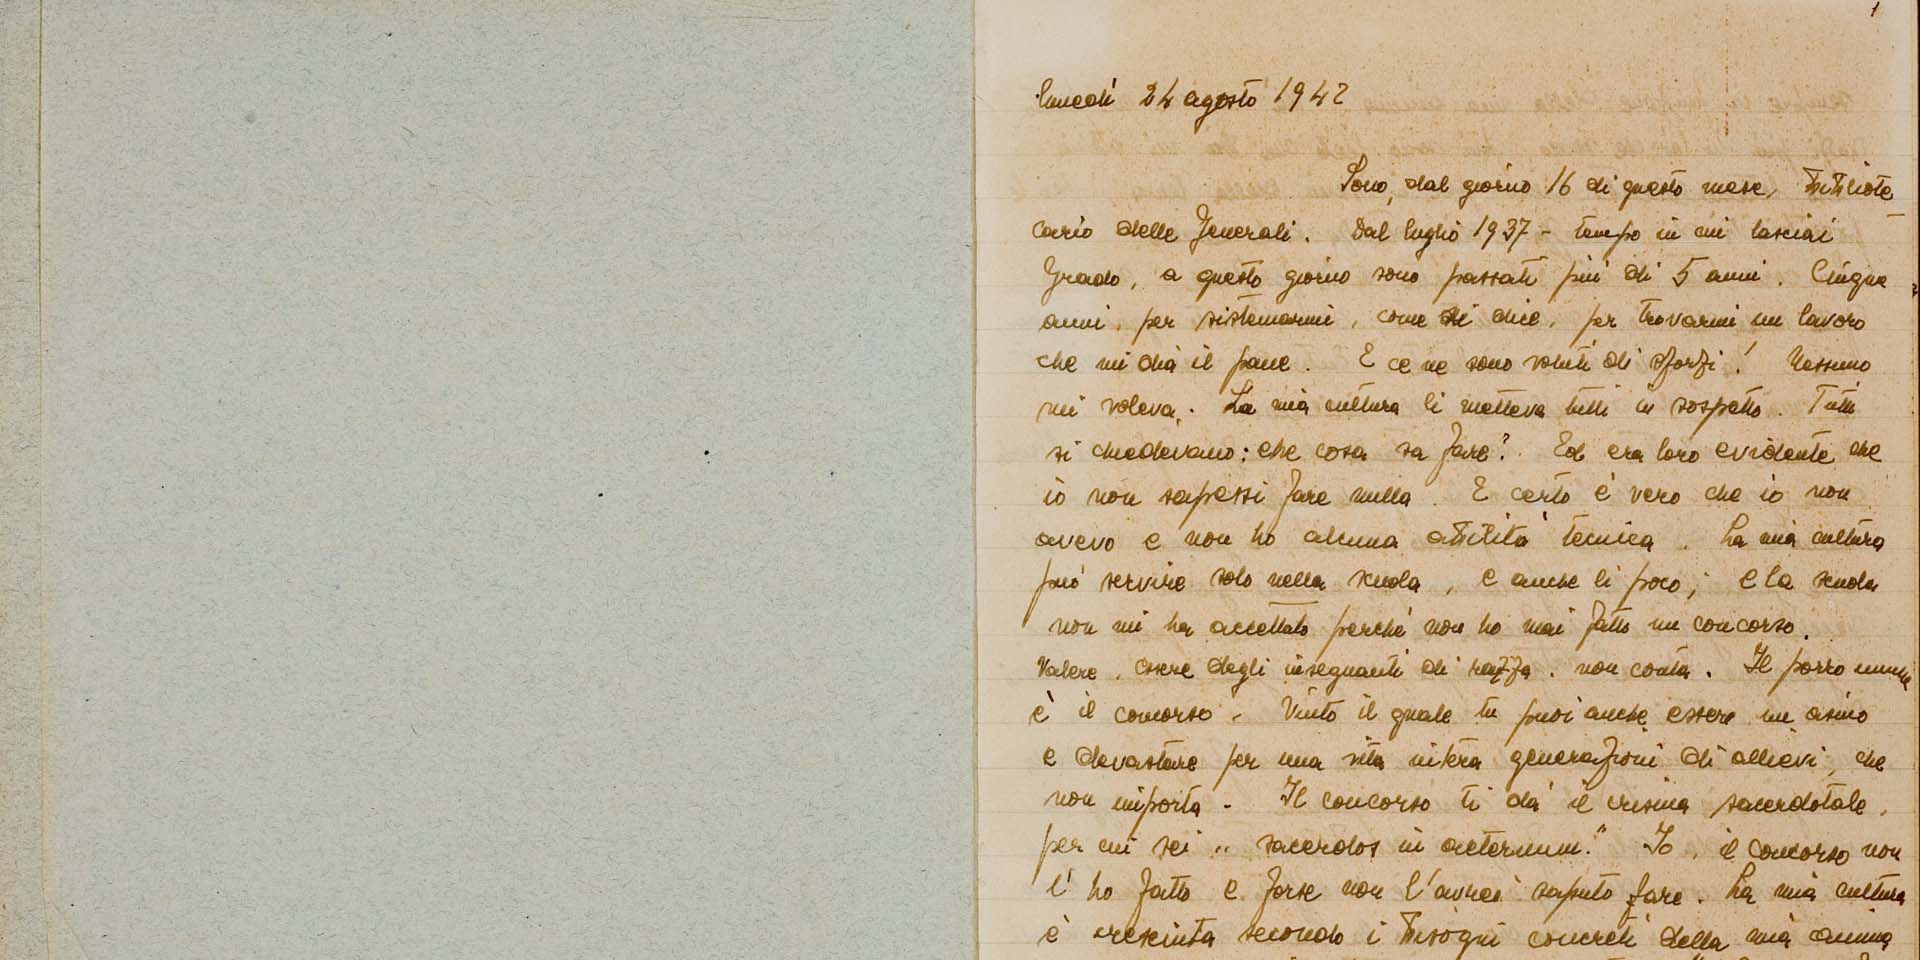 1
lunedì 24 agosto 1942
Sono, dal giorno 16 di questo mese, bibliote
cario delle Generali. Dal luglio 1937 - tempo in cui lasciai
Grado, a questo giorno sono passati più di 5 anni. Cinque
anni, per sistemarmi, come si dice, per trovarmi un lavoro
che mi dia il pane. E ce ne sono voluti di sforzi! Nessuno
mi voleva. La mia cultura li metteva tutti in sospetto. Tutti
si chiedevano: che cosa sa fare? Ed era loro evidente che
io non sapessi fare nulla. E certo è vero che io non
avevo e non ho alcuna abilità tecnica. La mia cultura
può servire solo nella scuola, e anche lì poco; e la scuola
non mi ha accettato perché non ho mai fatto un concorso.
Valere, essere degli insegnanti di razza, non conta. Il porro unum
è il concorso. Vinto il quale tu puoi anche essere un asino
e devastare per una vita intera generazioni di allievi, che
non importa. Il concorso ti dà il crisma sacerdotale,
per cui sei „ sacerdos in aeternum." Io, il concorso non
l'ho fatto e forse non l'avrei saputo fare. La mia cultura
è cresciuta secondo i bisogni concreti della mia anima